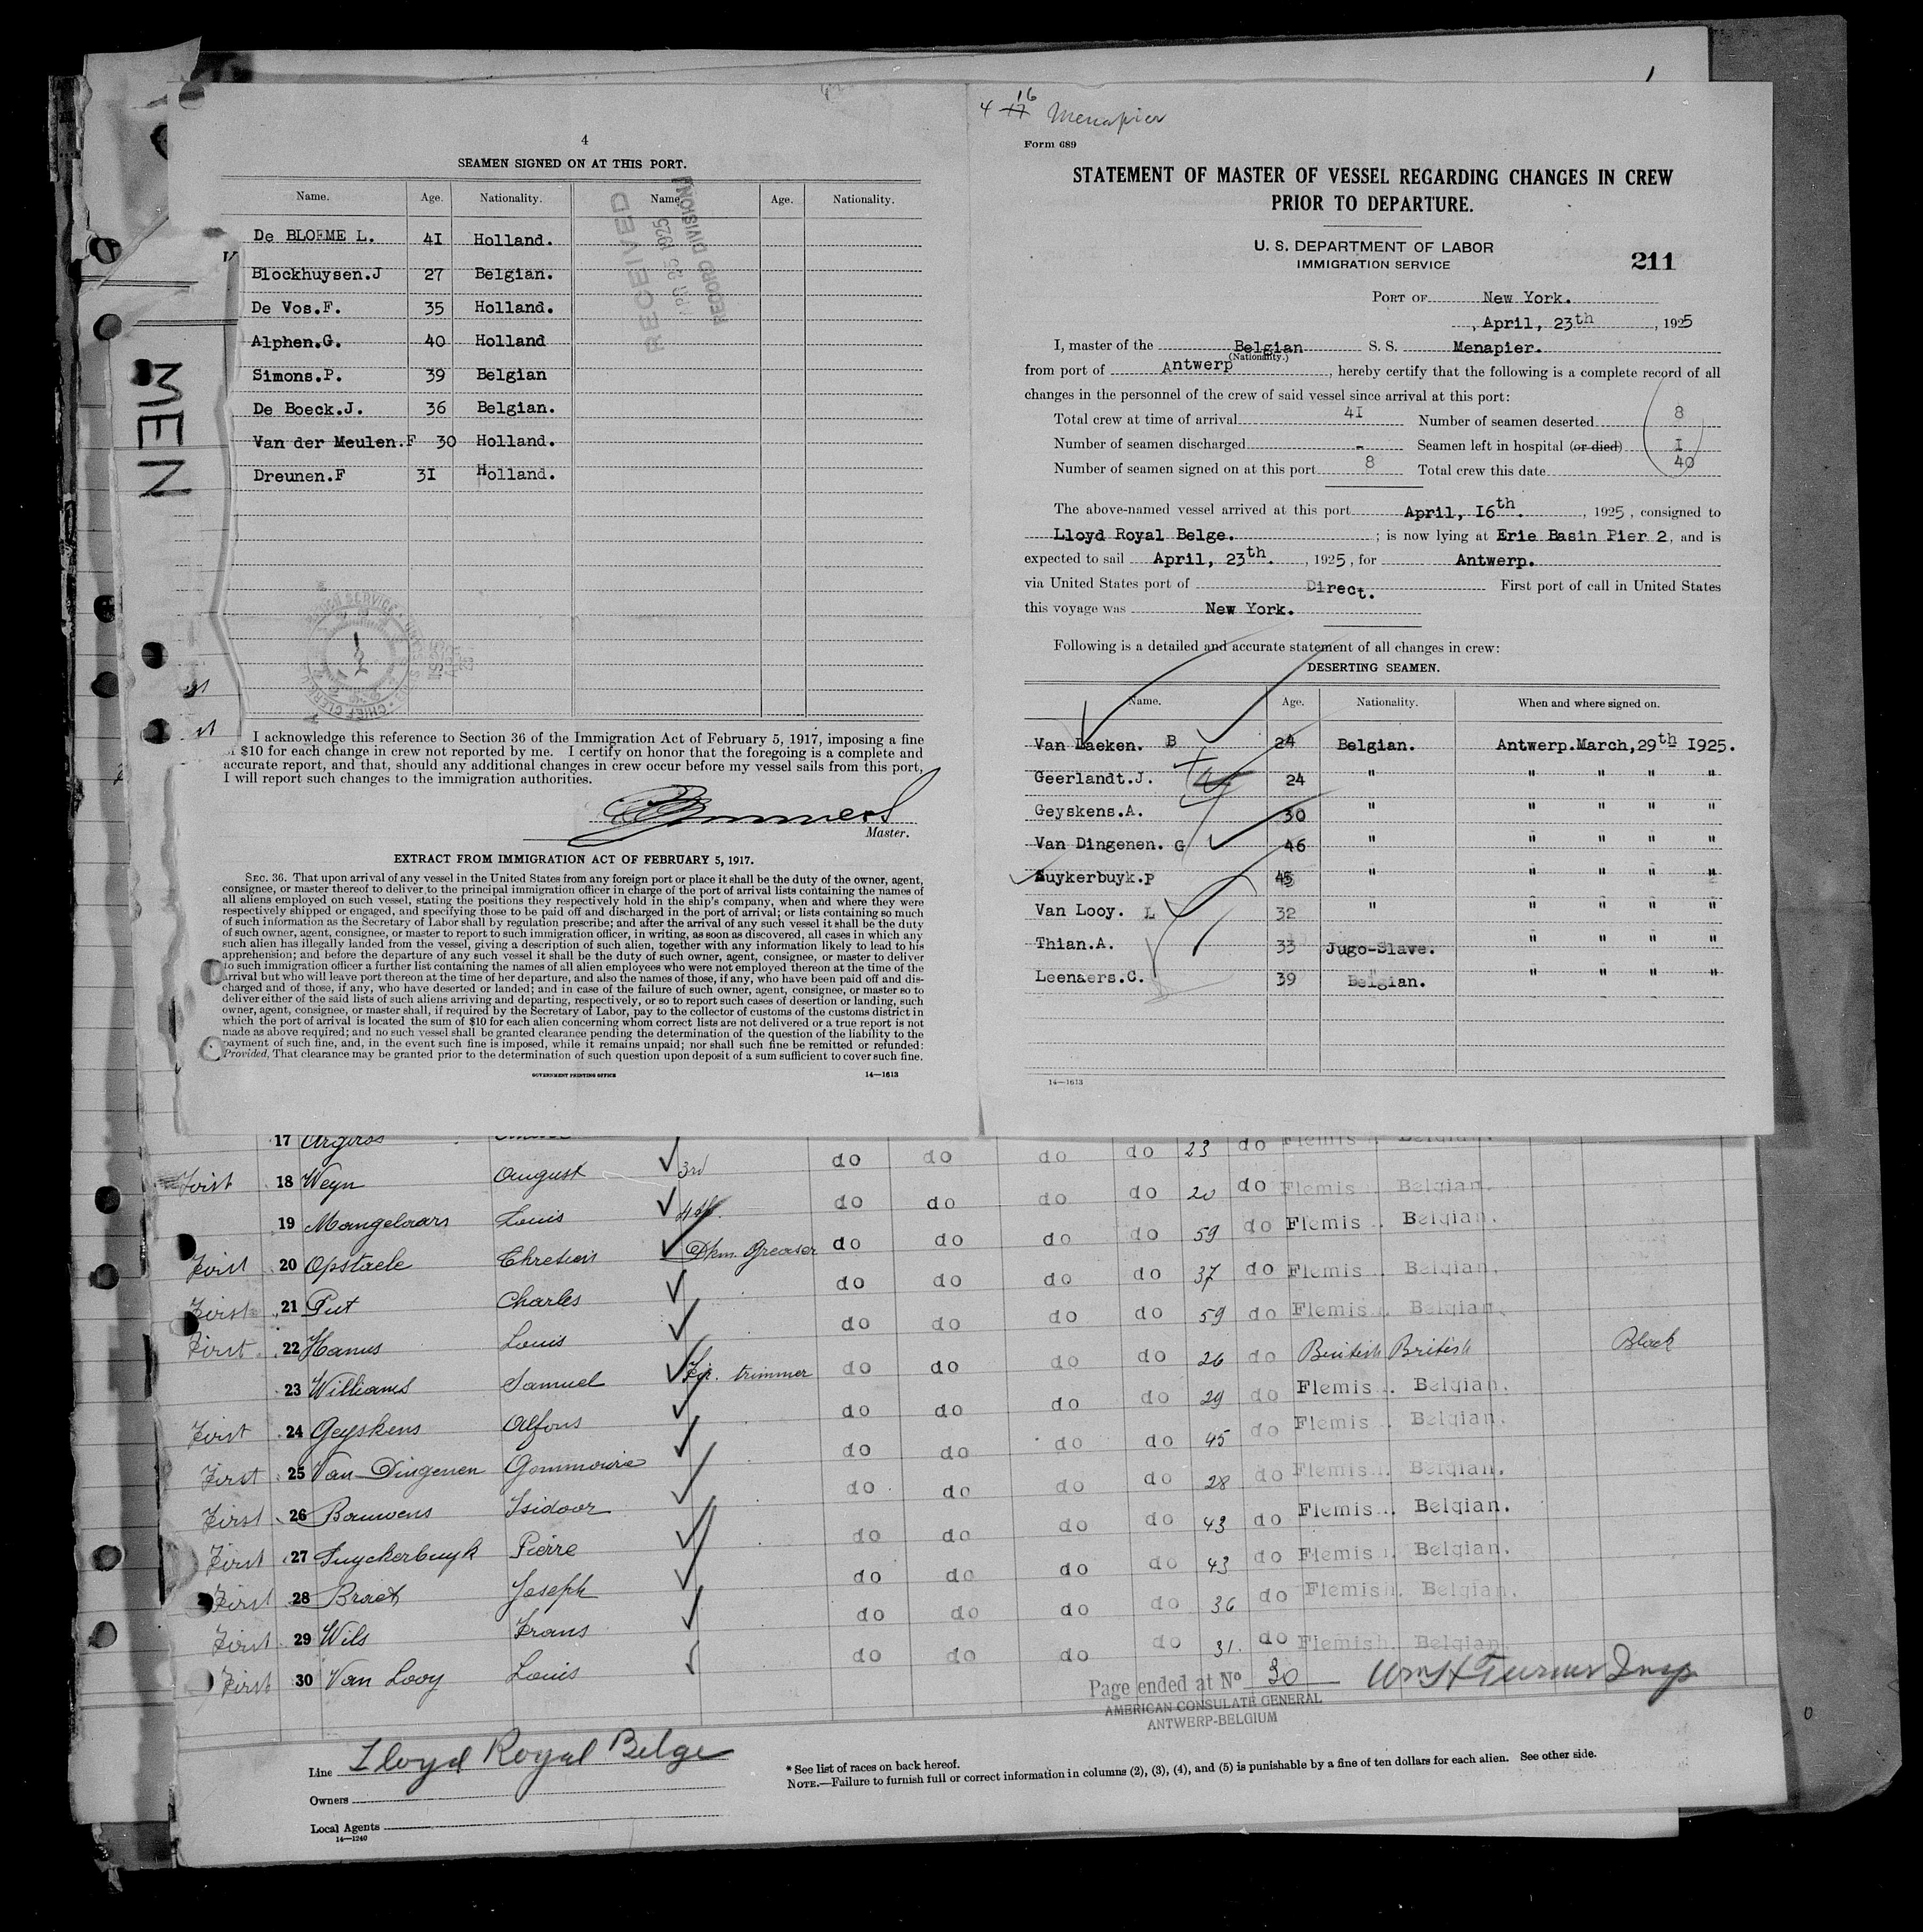 4
SEAMEN SIGNED ON AT THIS PORT.
Name. Age. Nationality. Name. Age. Nationality.
De BLOEME L. 4I Holland.
Blockhuysen.J 27 Belgian.
De Vos.F. 35 Holland.
Alphen.G. 40 Holland
Simons.P. 39 Belgian
De Boeck.J. 36 Belgian.
Van der Meulen.F 30 Holland.
Dreunen.F 3I Holland.
RECEIVED
RECORD DIVISION
MEN
I acknowledge this reference to Section 36 of the Immigration Act of February 5, 1917, imposing a fine
of $10 for each change in crew not reported by me. I certify on honor that the foregoing is a complete and
accurate report, and that, should any additional changes in crew occur before my vessel sails from this port,
I will report such changes to the immigration authorities.
Master.
EXTRACT FROM IMMIGRATION ACT OF FEBRUARY 5, 1917.
SEC. 36. That upon arrival of any vessel in the United States from any foreign port or place it shall be the duty of the owner, agent,
consignee, or master thereof to deliver to the principal immigration officer in charge of the port of arrival lists containing the names of
all aliens employed on such vessel, stating the positions they respectively hold in the ship's company, when and where they were
respectively shipped or engaged, and specifying those to be paid off and discharged in the port of arrival; or lists containing so much
of such information as the Secretary of Labor shall by regulation prescribe; and after the arrival of any such vessel it shall be the duty
of such owner, agent, consignee, or master to report to such immigration officer, in writing, as soon as discovered, all cases in which any
such alien has illegally landed from the vessel, giving a description of such alien, together with any information likely to lead to his
apprehension; and before the departure of any such vessel it shall be the duty of such owner, agent, consignee, or master to deliver
to such immigration officer a further list containing the names of all alien employees who were not employed thereon at the time of the
arrival but who will leave port thereon at the time of her departure, and also the names of those, if any, who have been paid off and dis-
charged and of those, if any, who have deserted or landed; and in case of the failure of such owner, agent, consignee, or master so to
deliver either of the said lists of such aliens arriving and departing, respectively, or so to report such cases of desertion or landing, such
owner, agent, consignee, or master shall, if required by the Secretary of Labor, pay to the collector of customs of the customs district in
which the port of arrival is located the sum of $10 for each alien concerning whom correct lists are not delivered or a true report is not
made as above required; and no such vessel shall be granted clearance pending the determination of the question of the liability to the
payment of such fine, and, in the event such fine is imposed, while it remains unpaid; nor shall such fine be remitted or refunded:
Provided, That clearance may be granted prior to the determination of such question upon deposit of a sum sufficient to cover such fine.
GOVERNMENT PRINTING OFFICE 14—1613
4 17 16 Menapier
Form 689
STATEMENT OF MASTER OF VESSEL REGARDING CHANGES IN CREW
PRIOR TO DEPARTURE.
U. S. DEPARTMENT OF LABOR
IMMIGRATION SERVICE
211
PORT OF New York.
, April, 23th , 1925
I, master of the Belgian S. S. Menapier.
(Nationality.)
from port of Antwerp , hereby certify that the following is a complete record of all
changes in the personnel of the crew of said vessel since arrival at this port:
Total crew at time of arrival 4I Number of seamen deserted 8
Number of seamen discharged - Seamen left in hospital (or died) I
Number of seamen signed on at this port 8 Total crew this date 40
The above-named vessel arrived at this port April, I6th. , 1925 , consigned to
Lloyd Royal Belge. ; is now lying at Erie Basin Pier 2, and is
expected to sail April, 23th. , 1925 , for Antwerp.
via United States port of Direct. First port of call in United States
this voyage was New York.
Following is a detailed and accurate statement of all changes in crew:
DESERTING SEAMEN.
Name. Age. Nationality. When and where signed on.
Van Laeken. B 24 Belgian. Antwerp.March,29th I925.
Geerlandt.J. 24 " " " " "
Geyskens.A. 30 " " " " "
Van Dingenen. G 46 " " " " "
Suykerbuyk.P 45 " " " " "
Van Looy. L 32 " " " " "
Thian.A. 33 Jugo-Slave. " " " "
Leenaers.C. 39 Belgian. " " " "
14—1613
17 Argiros do do do do 23 do Flemis Belgian.
First 18 Weyn August 3rd do do do do 20 do Flemis Belgian.
19 Mangelaars Louis 4th. do do do do 59 do Flemis . Belgian.
First 20 Opstaele Chretien Dkm. Greaser do do do do 37 do Flemis . Belgian.
First 21 Put Charles do do do do 59 do Flemis . Belgian.
First 22 Hanus Louis do do do do 26 do British British Black
23 Williams Samuel Fir. trimmer do do do do 29 do Flemis . Belgian.
First 24 Geyskens Alfons do do do do 45 do Flemis . Belgian.
First 25 Van Dingenen Gommaire do do do do 28 do Flemish. Belgian.
First 26 Bauwens Isidoor do do do do 43 do Flemis . Belgian.
First 27 Suyckerbuyk Pierre do do do do 43 do Flemis . Belgian.
First 28 Braet Joseph do do do do 36 do Flemish. Belgian.
First 29 Wils Frans do do do do 31. do Flemish. Belgian.
First 30 Van Looy Louis
Page ended at No 30 Wm H Turner Insp
AMERICAN CONSULATE GENERAL
ANTWERP-BELGIUM
Line Lloyd Royal Belge
Owners
Local Agents
14—1240
* See list of races on back hereof.
NOTE.—Failure to furnish full or correct information in columns (2), (3), (4), and (5) is punishable by a fine of ten dollars for each alien. See other side.